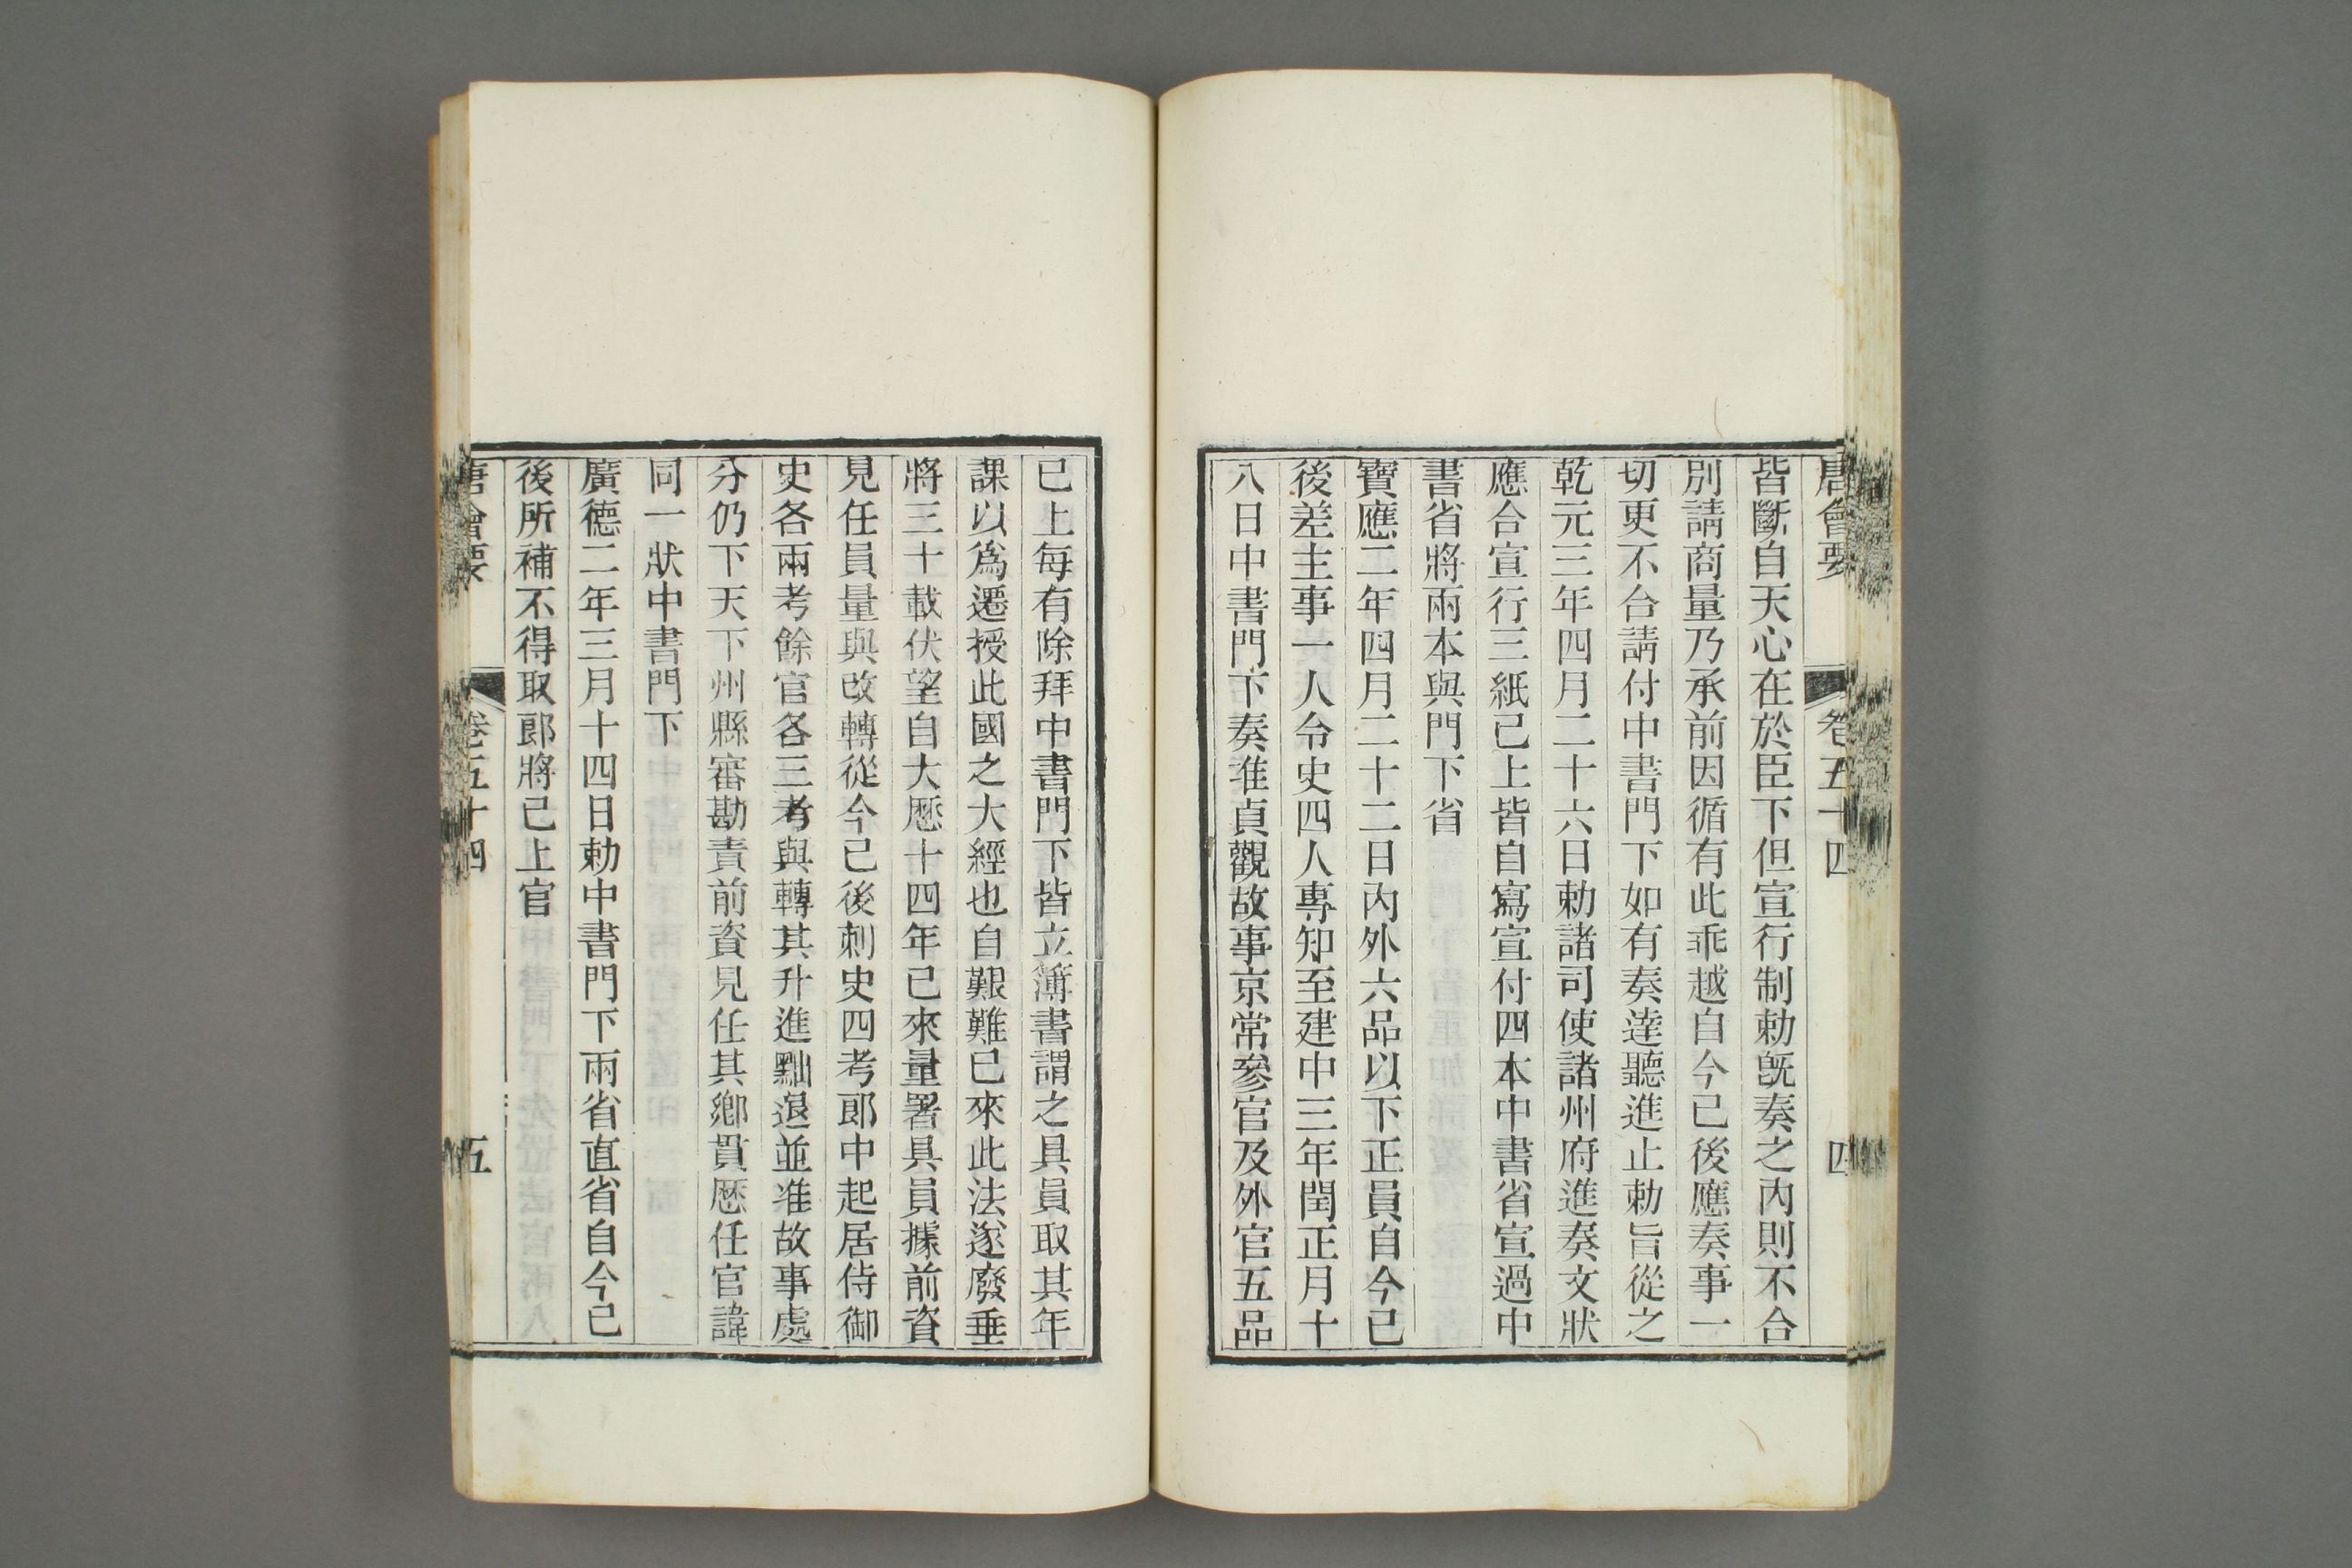 唐會要 卷五十四 四
皆斷自天心在於臣下但宣行制勅旣奏之內則不合
別請商量乃承前因循有此乖越自今已後應奏事一
切更不合請付中書門下如有奏達聽進止勅旨從之
乾元三年四月二十六日勅諸司使諸州府進奏文狀
應合宣行三紙已上皆自寫宣付四本中書省宣過中
書省將兩本與門下省
寶應二年四月二十二日內外六品以下正員自今已
後差主事一人令史四人專知至建中三年閏正月十
八日中書門下奏准貞觀故事京常參官及外官五品
已上每有除拜中書門下皆立簿書謂之具員取其年
課以爲遷授此國之大經也自艱難已來此法遂廢垂
將三十載伏望自大厯十四年已來量署具員據前資
見任員量與改轉從今已後刺史四考郎中起居侍御
史各兩考餘官各三考與轉其升進黜退並准故事處
分仍下天下州縣審勘責前資見任其鄉貫厯任官諱
同一狀中書門下
廣德二年三月十四日勅中書門下兩省直省自今已
後所補不得取郎將已上官
唐會要 卷五十四 五